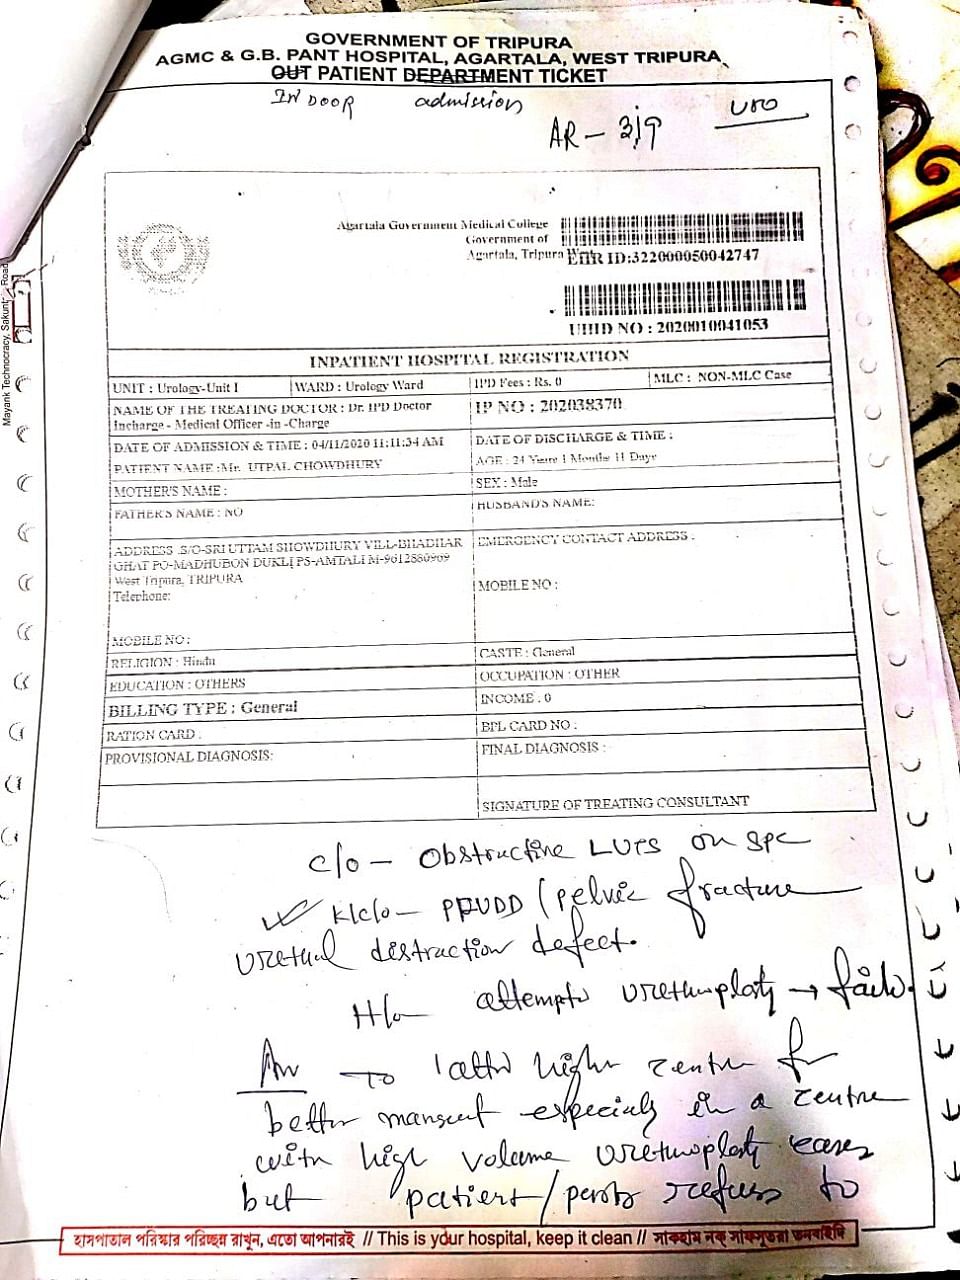 GOVERNMENT OF TRIPURA
AGMC & G.B. PANT HOSPITAL, AGARTALA, WEST TRIPURA
OUT PATIENT DEPARTMENT TICKET
INDOOR admission
AR - 3/9
uro
Agartala Government Medical College
Government of
Agartala, Tripura
EHR ID:322000050042747
UHID NO : 2020010041053
INPATIENT HOSPITAL REGISTRATION
UNIT : Urology-Unit I WARD : Urology Ward IPD Fees : Rs. 0 MLC : NON-MLC Case
NAME OF THE TREATING DOCTOR : Dr. IPD Doctor
Incharge - Medical Officer -in -Charge
IP NO : 202038370
DATE OF ADMISSION & TIME : 04/11/2020 11:11:34 AM
DATE OF DISCHARGE & TIME :
PATIENT NAME :Mr. UTPAL CHOWDHURY
AGE : 24 Years 1 Months 11 Days
MOTHER'S NAME :
SEX : Male
FATHER'S NAME : NO
HUSBAND'S NAME:
ADDRESS :S/O-SRI UTTAM SHOWDHURY VILL-BHADHAR
GHAT PO-MADHUBON DUKLI PS-AMTALI M-9612880969
West Tripura, TRIPURA
Telephone:
EMERGENCY CONTACT ADDRESS :
MOBILE NO :
MOBILE NO :
RELIGION : Hindu
CASTE : General
EDUCATION : OTHERS
OCCUPATION : OTHER
BILLING TYPE : General
INCOME : 0
RATION CARD :
BPL CARD NO :
PROVISIONAL DIAGNOSIS:
FINAL DIAGNOSIS :
SIGNATURE OF TREATING CONSULTANT
c/o - Obstructive LUTS on SPC
K/c/o - PFUDD (pelvic fracture
urethral distraction defect.
H/o attempto urethroplasty → fail
Adv To higher centre for
better especially in a centre
with high volume urethroplasty cases
but patient/ refuse to
হাসপাতাল পরিস্কার পরিচ্ছন্ন রাখুন, এতো আপনারই // This is your hospital, keep it clean //
Mayank Technocracy, Sakuntala Road